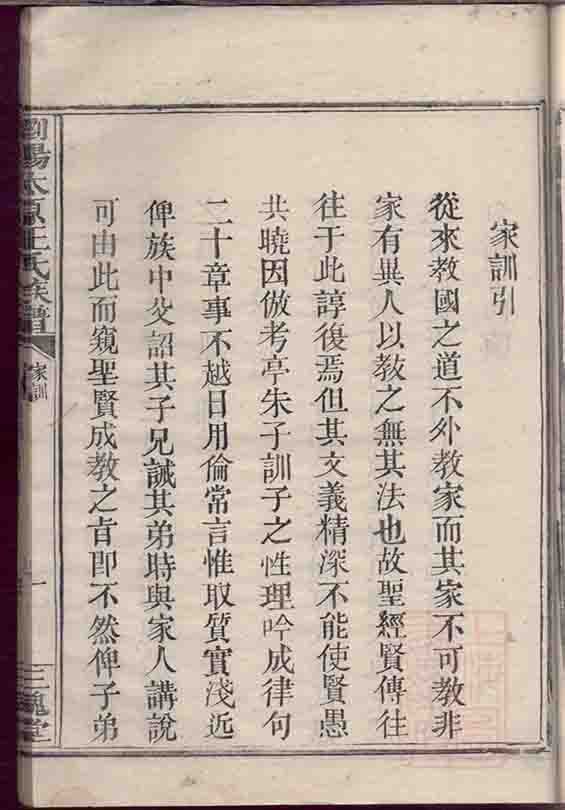 家訓引
從來教國之道不外教家而其家不可教非
家有異人以教之無其法也故聖經賢傳往
往于此諄復焉但其文義精深不能使賢愚
共曉因倣考亭朱子訓子之性理吟成律句
二十章事不越日用倫常言惟取質實淺近
俾族中父詔其子兄誡其弟時與家人講說
可由此而窺聖賢成教之旨即不然俾子弟
瀏陽太原王氏族譜
家訓
一
三槐堂